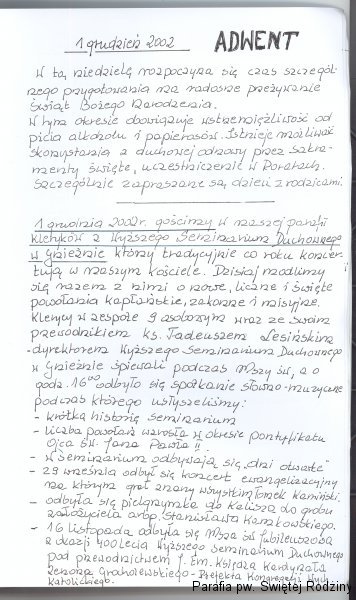 1 grudzień 2002 ADWENT
W tą niedzielę rozpoczyna się czas szczegól-
nego przygotowania na radosne przeżywanie
Świąt Bożego Narodzenia.
W tym okresie obowiązuje wstrzemięźliwość od
picia alkoholu i papierosów. Istnieje możliwość
skorzystania z duchowej odnowy przez sakra-
menty święte, uczestniczenie w Roratach.
Szczególnie zapraszane są dzieci z rodzicami.
1 grudnia 2002r. gościmy w naszej parafii
kleryków z Wyższego Seminarium Duchownego
w Gnieźnie którzy tradycyjnie co roku koncer-
tują w naszym kościele. Dzisiaj modlimy
się razem z nimi o nowe, liczne i święte
powołania kapłańskie, zakonne i misyjne.
Klerycy w zespole 9 osobowym wraz ze swoim
przewodnikiem ks. Tadeuszem Lesińskim
- dyrektorem Wyższego Seminarium Duchownego
w Gnieźnie śpiewali podczas Mszy św., a o
godz. 16⁰⁰ odbyło się spotkanie słowno-muzyczne
podczas którego usłyszeliśmy:
- krótką historię seminarium
- liczba powołań wzrosła w okresie pontyfikatu
Ojca Św. Jana Pawła II
- w seminarium odbywają się „dni otwarte"
- 29 września odbył się koncert ewangelizacyjny
na którym grał znany wszystkim Tomek Kamiński.
- odbyła się pielgrzymka do Kalisza do grobu
założyciela arbp. Stanisława Karnkowskiego.
- 16 listopada odbyła się Msza Św. Jubileuszowa
z okazji 400lecia Wyższego Seminarium Duchownego
pod przewodnictwem J. Em. Księdza Kardynała
Zenona Grocholewskiego - Prefekta Kongregacji Wych.
Katolickiego.
Parafia pw. Świętej Rodziny